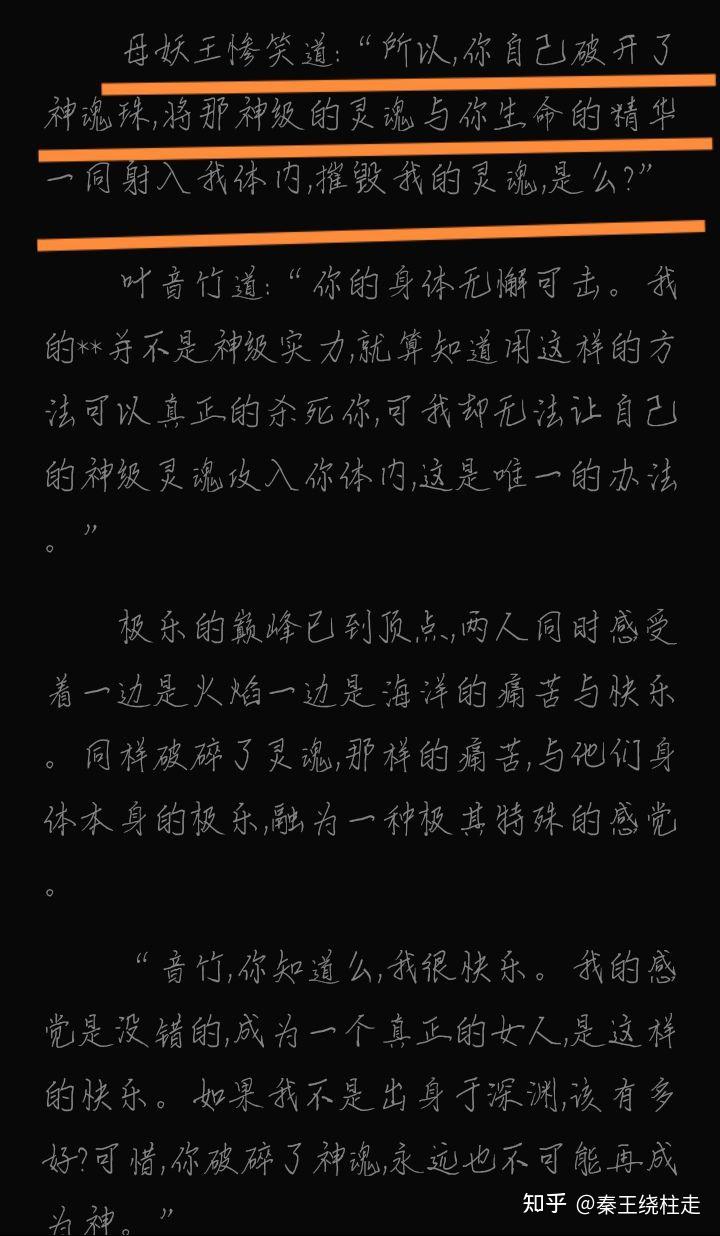 母妖王惨笑道:“所以,你自己破开了
神魂珠,将那神级的灵魂与你生命的精华
一同射入我体内,摧毁我的灵魂,是么?”
叶音竹道:“你的身体无懈可击。我
的**并不是神级实力,就算知道用这样的方
法可以真正的杀死你,可我却无法让自己
的神级灵魂攻入你体内,这是唯一的办法
。”
极乐的巅峰已到顶点,两人同时感受
着一边是火焰一边是海洋的痛苦与快乐
。同样破碎了灵魂,那样的痛苦,与他们身
体本身的极乐,融为一种极其特殊的感觉
。
“音竹,你知道么,我很快乐。我的感
觉是没错的,成为一个真正的女人,是这样
的快乐。如果我不是出身于深渊,该有多
好?可惜,你破碎了神魂,永远也不可能再成
为神。”
知乎 @秦王绕柱走